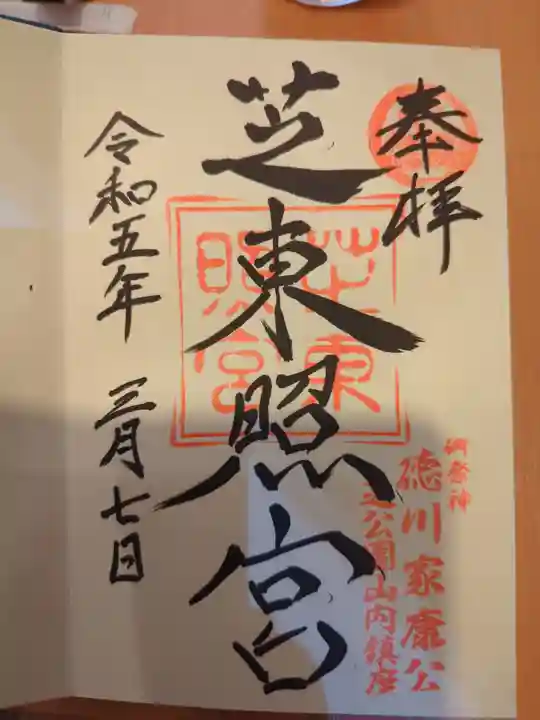 奉拝
御祭神
徳川家康公
芝公園山内鎮座
芝東照宮
芝東
照宮
令和五年 三月七日